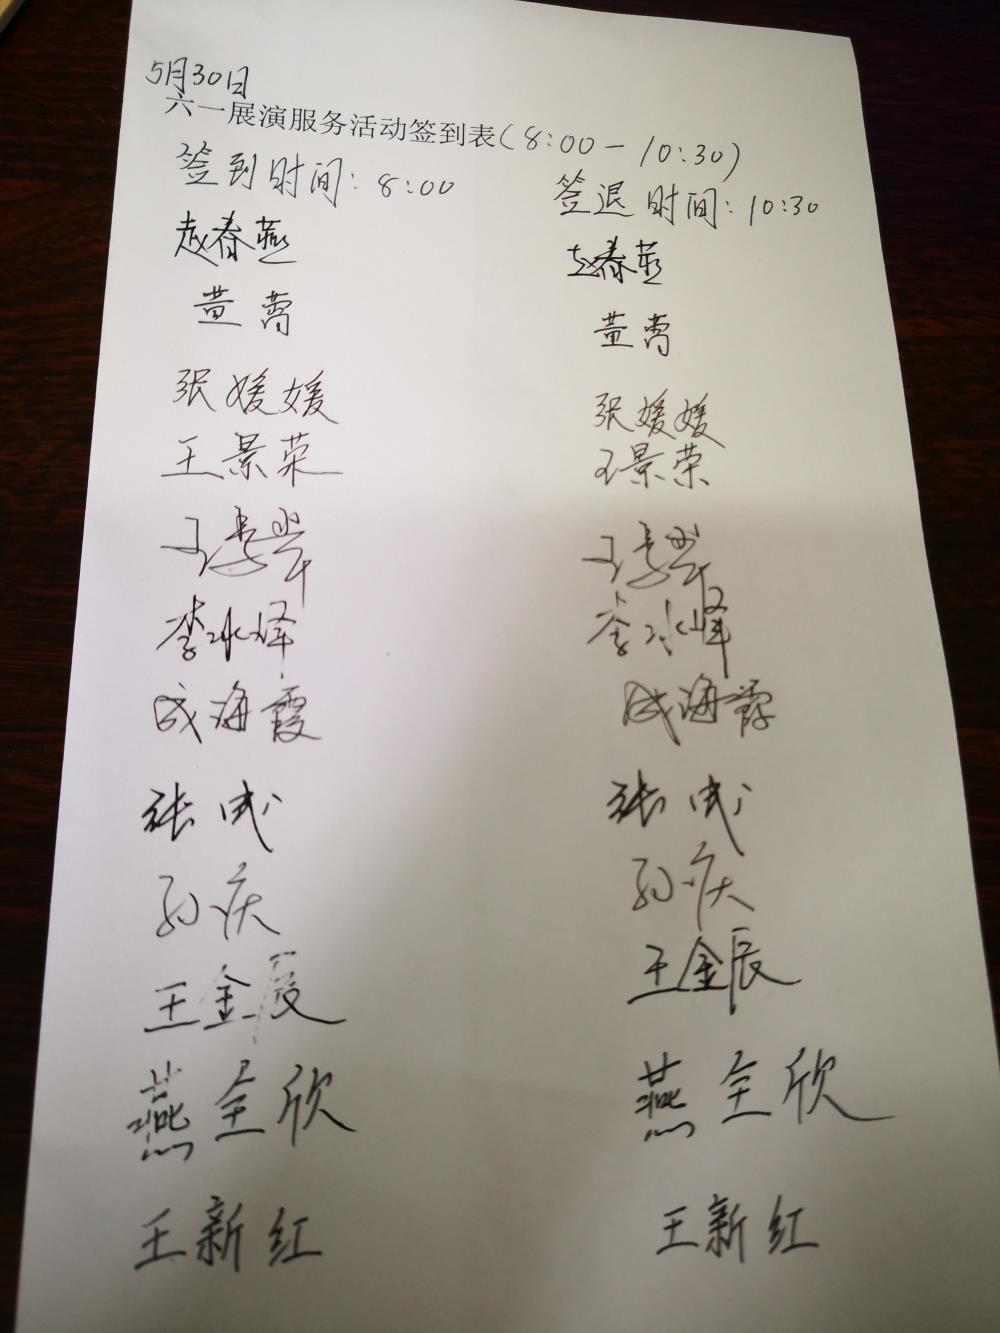 5月30日
六一展演服务活动签到表(8:00-10:30)
签到时间:8:00 签退时间:10:30
赵春燕 赵春燕
董菁 董菁
张媛媛 张媛媛
王景荣 王景荣
王 王
李冰峰 李冰峰
成海霞 成海霞
张成 张成
孙庆 孙庆
王金辰 王金辰
燕全欣 燕全欣
王新红 王新红